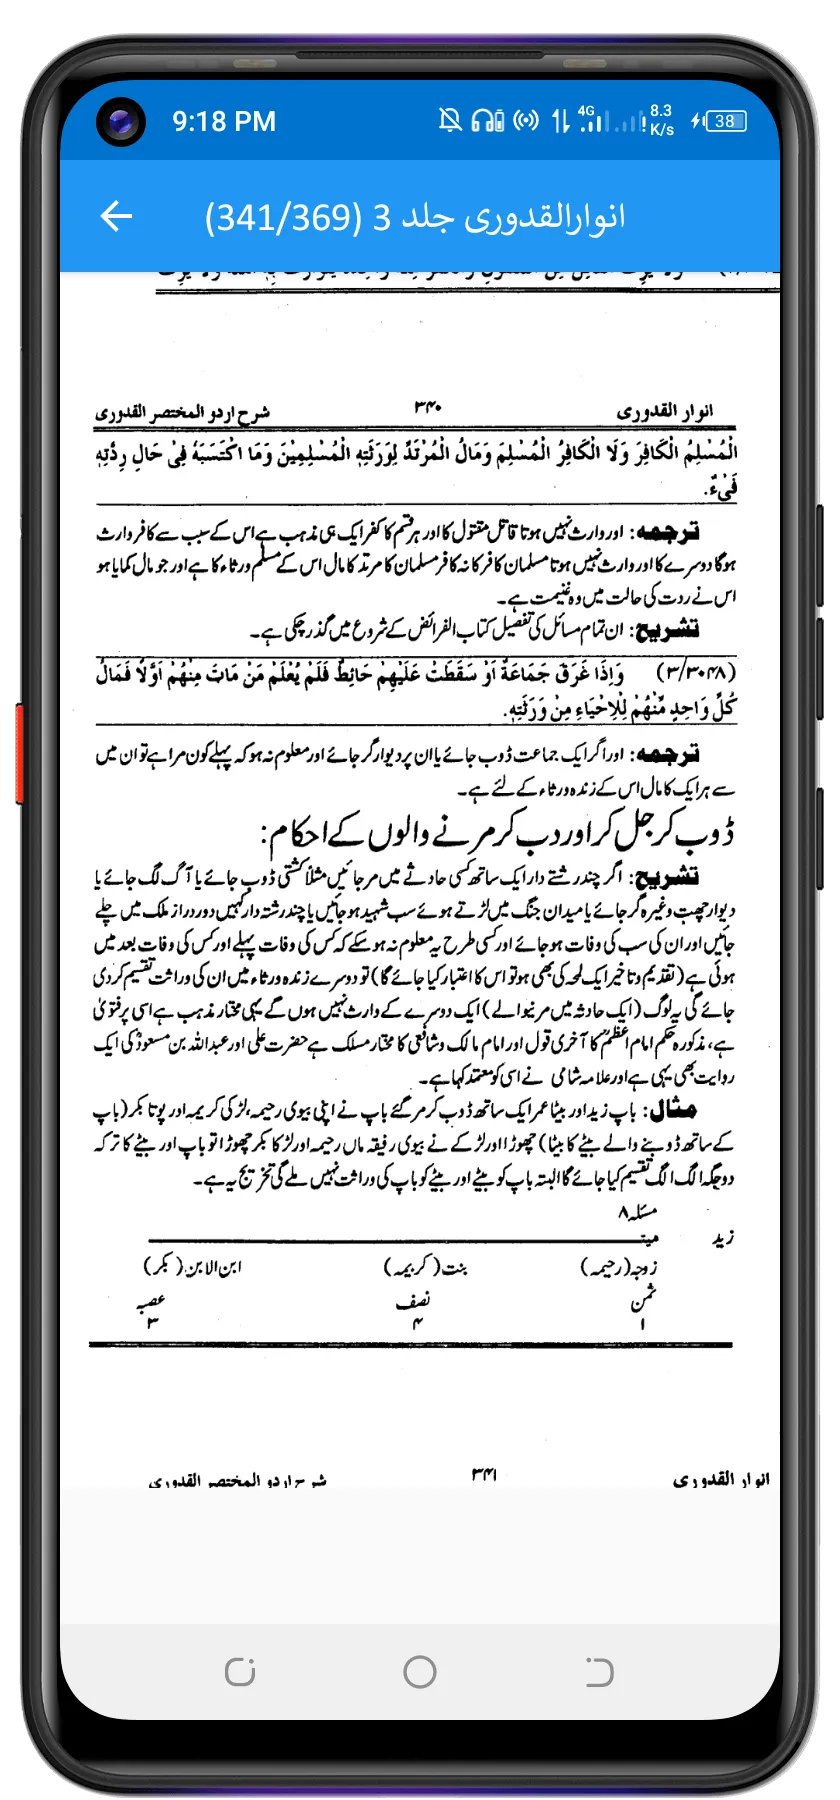 9:18 PM
4G
8.3
K/s
38
انوارالقدوری جلد 3 (341/369)
انوار القدوری ۳۴۰ شرح اردو المختصر القدوری
الْمُسْلِمُ الْكَافِرَ وَلَا الْكَافِرُ الْمُسْلِمَ وَمَالُ الْمُرْتَدِّ لِوَرَثَتِهِ الْمُسْلِمِيْنَ وَمَا اكْتَسَبَهُ فِيْ حَالِ رِدَّتِهِ
فَيْءٌ.
ترجمه: اور وارث نہیں ہوتا قاتل مقتول کا اور ہر قسم کا کفر ایک ہی مذہب ہے اس کے سبب سے کافر وارث
ہوگا دوسرے کا اور وارث نہیں ہوتا مسلمان کافر کا نہ کافر مسلمان کا مرتد کا مال اس کے مسلم ورثاء کا ہے اور جو مال کمایا ہو
اس نے ردت کی حالت میں وہ غنیمت ہے۔
تشریح: ان تمام مسائل کی تفصیل کتاب الفرائض کے شروع میں گذر چکی ہے۔
(۳/۳۰۴۸) وَاِذَا غَرَقَ جَمَاعَةٌ اَوْ سَقَطَتْ عَلَيْهِمْ حَائِطٌ فَلَمْ يُعْلَمْ مَنْ مَاتَ مِنْهُمْ اَوَّلًا فَمَالُ
كُلِّ وَاحِدٍ مِّنْهُمْ لِلْاَحْيَاءِ مِنْ وَرَثَتِهِ.
ترجمه: اور اگر ایک جماعت ڈوب جائے یا ان پر دیوار گر جائے اور معلوم نہ ہو کہ پہلے کون مرا ہے تو ان میں
سے ہر ایک کا مال اس کے زندہ ورثاء کے لئے ہے۔
ڈوب کر جل کر اور دب کر مرنے والوں کے احکام:
تشریح: اگر چند رشتے دار ایک ساتھ کسی حادثے میں مر جائیں مثلاً کشتی ڈوب جائے یا آگ لگ جائے یا
دیوار چھت وغیرہ گر جائے یا میدان جنگ میں لڑتے ہوئے سب شہید ہو جائیں یا چند رشتہ دار کہیں دور دراز ملک میں چلے
جائیں اور ان کی سب کی وفات ہو جائے اور کسی طرح یہ معلوم نہ ہو سکے کہ کس کی وفات پہلے اور کس کی وفات بعد میں
ہوئی ہے (تقدیم و تاخیر ایک لمحہ کی بھی ہو تو اس کا اعتبار کیا جائے گا) تو دوسرے زندہ ورثاء میں ان کی وراثت تقسیم کردی
جائے گی یہ لوگ (ایک حادثہ میں مرنیوالے) ایک دوسرے کے وارث نہیں ہوں گے یہی مختار مذہب ہے اسی پر فتویٰ
ہے، مذکورہ حکم امام اعظمؒ کا آخری قول اور امام مالک و شافعی کا مختار مسلک ہے حضرت علی اور عبداللہ بن مسعودؓ کی ایک
روایت بھی یہی ہے اور علامہ شامی نے اسی کو معتمد کہا ہے۔
مثال: باپ زید اور بیٹا عمر ایک ساتھ ڈوب کر مر گئے باپ نے اپنی بیوی رحیمہ، لڑکی کریمہ اور پوتا بکر (باپ
کے ساتھ ڈوبنے والے بیٹے کا بیٹا) چھوڑا اور لڑکے نے بیوی رفیقہ ماں رحیمہ اور لڑکا بکر چھوڑا تو باپ اور بیٹے کا ترکہ
دو جگہ الگ الگ تقسیم کیا جائے گا البتہ باپ کو بیٹے اور بیٹے کو باپ کی وراثت نہیں ملے گی تخریج یہ ہے۔
مسئلہ ۸
زید میتـ
زوجہ (رحیمہ) بنت (کریمہ) ابن الابن (بکر)
ثمن نصف عصبہ
۱ ۴ ۳
انوار القدوری ۳۴۱ شرح اردو المختصر القدوری